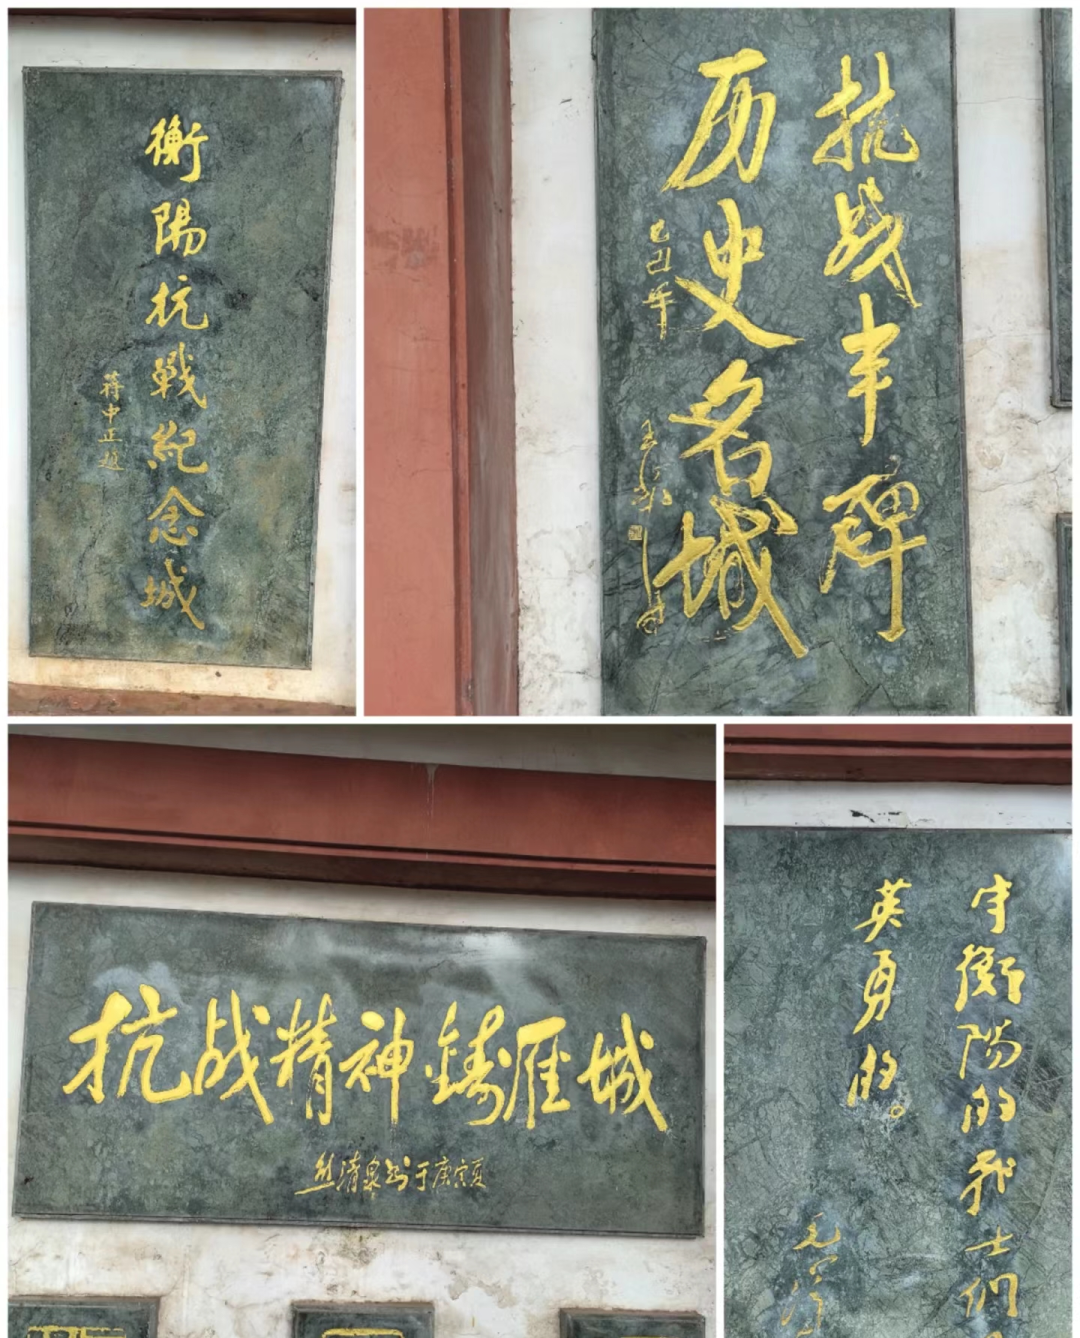 衡陽抗戰紀念城
蔣中正題
抗战丰碑
历史名城
己丑年
抗战精神鑄雁城
清泉书于庚寅夏
守衡陽的战士们
英勇的。
毛泽